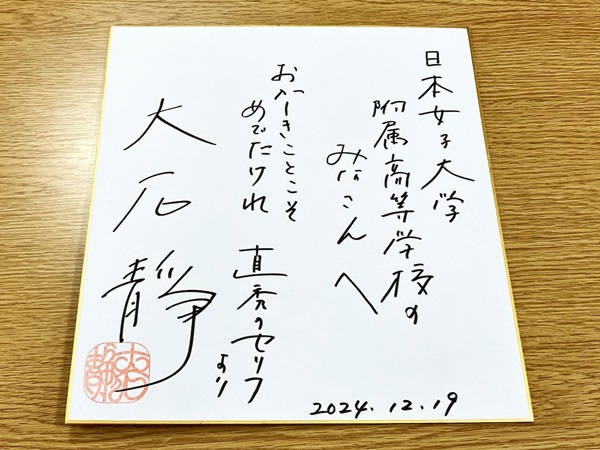 日本女子大学
附属高等学校の
みなさんへ
おかしきことこそ
めでたけれ
直秀のセリフ
より
大石静
2024.12.19